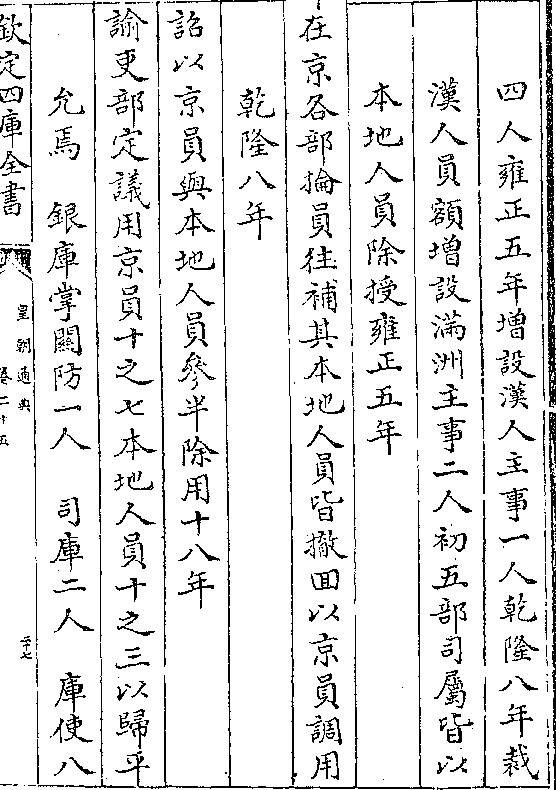 四人雍正五年增設漢人主事一人乾隆八年裁
漢人員額增設滿洲主事二人初五部司屬皆以
本地人員除授雍正五年
在京各部掄員往補其本地人員皆撤回以京員調用
乾隆八年
詔以京員與本地人員參半除用十八年
諭吏部定議用京員十之七本地人員十之三以歸平
允焉　銀庫掌關防一人　司庫二人　庫使八
欽定四庫全書
皇朝通典
卷二十五
二十七